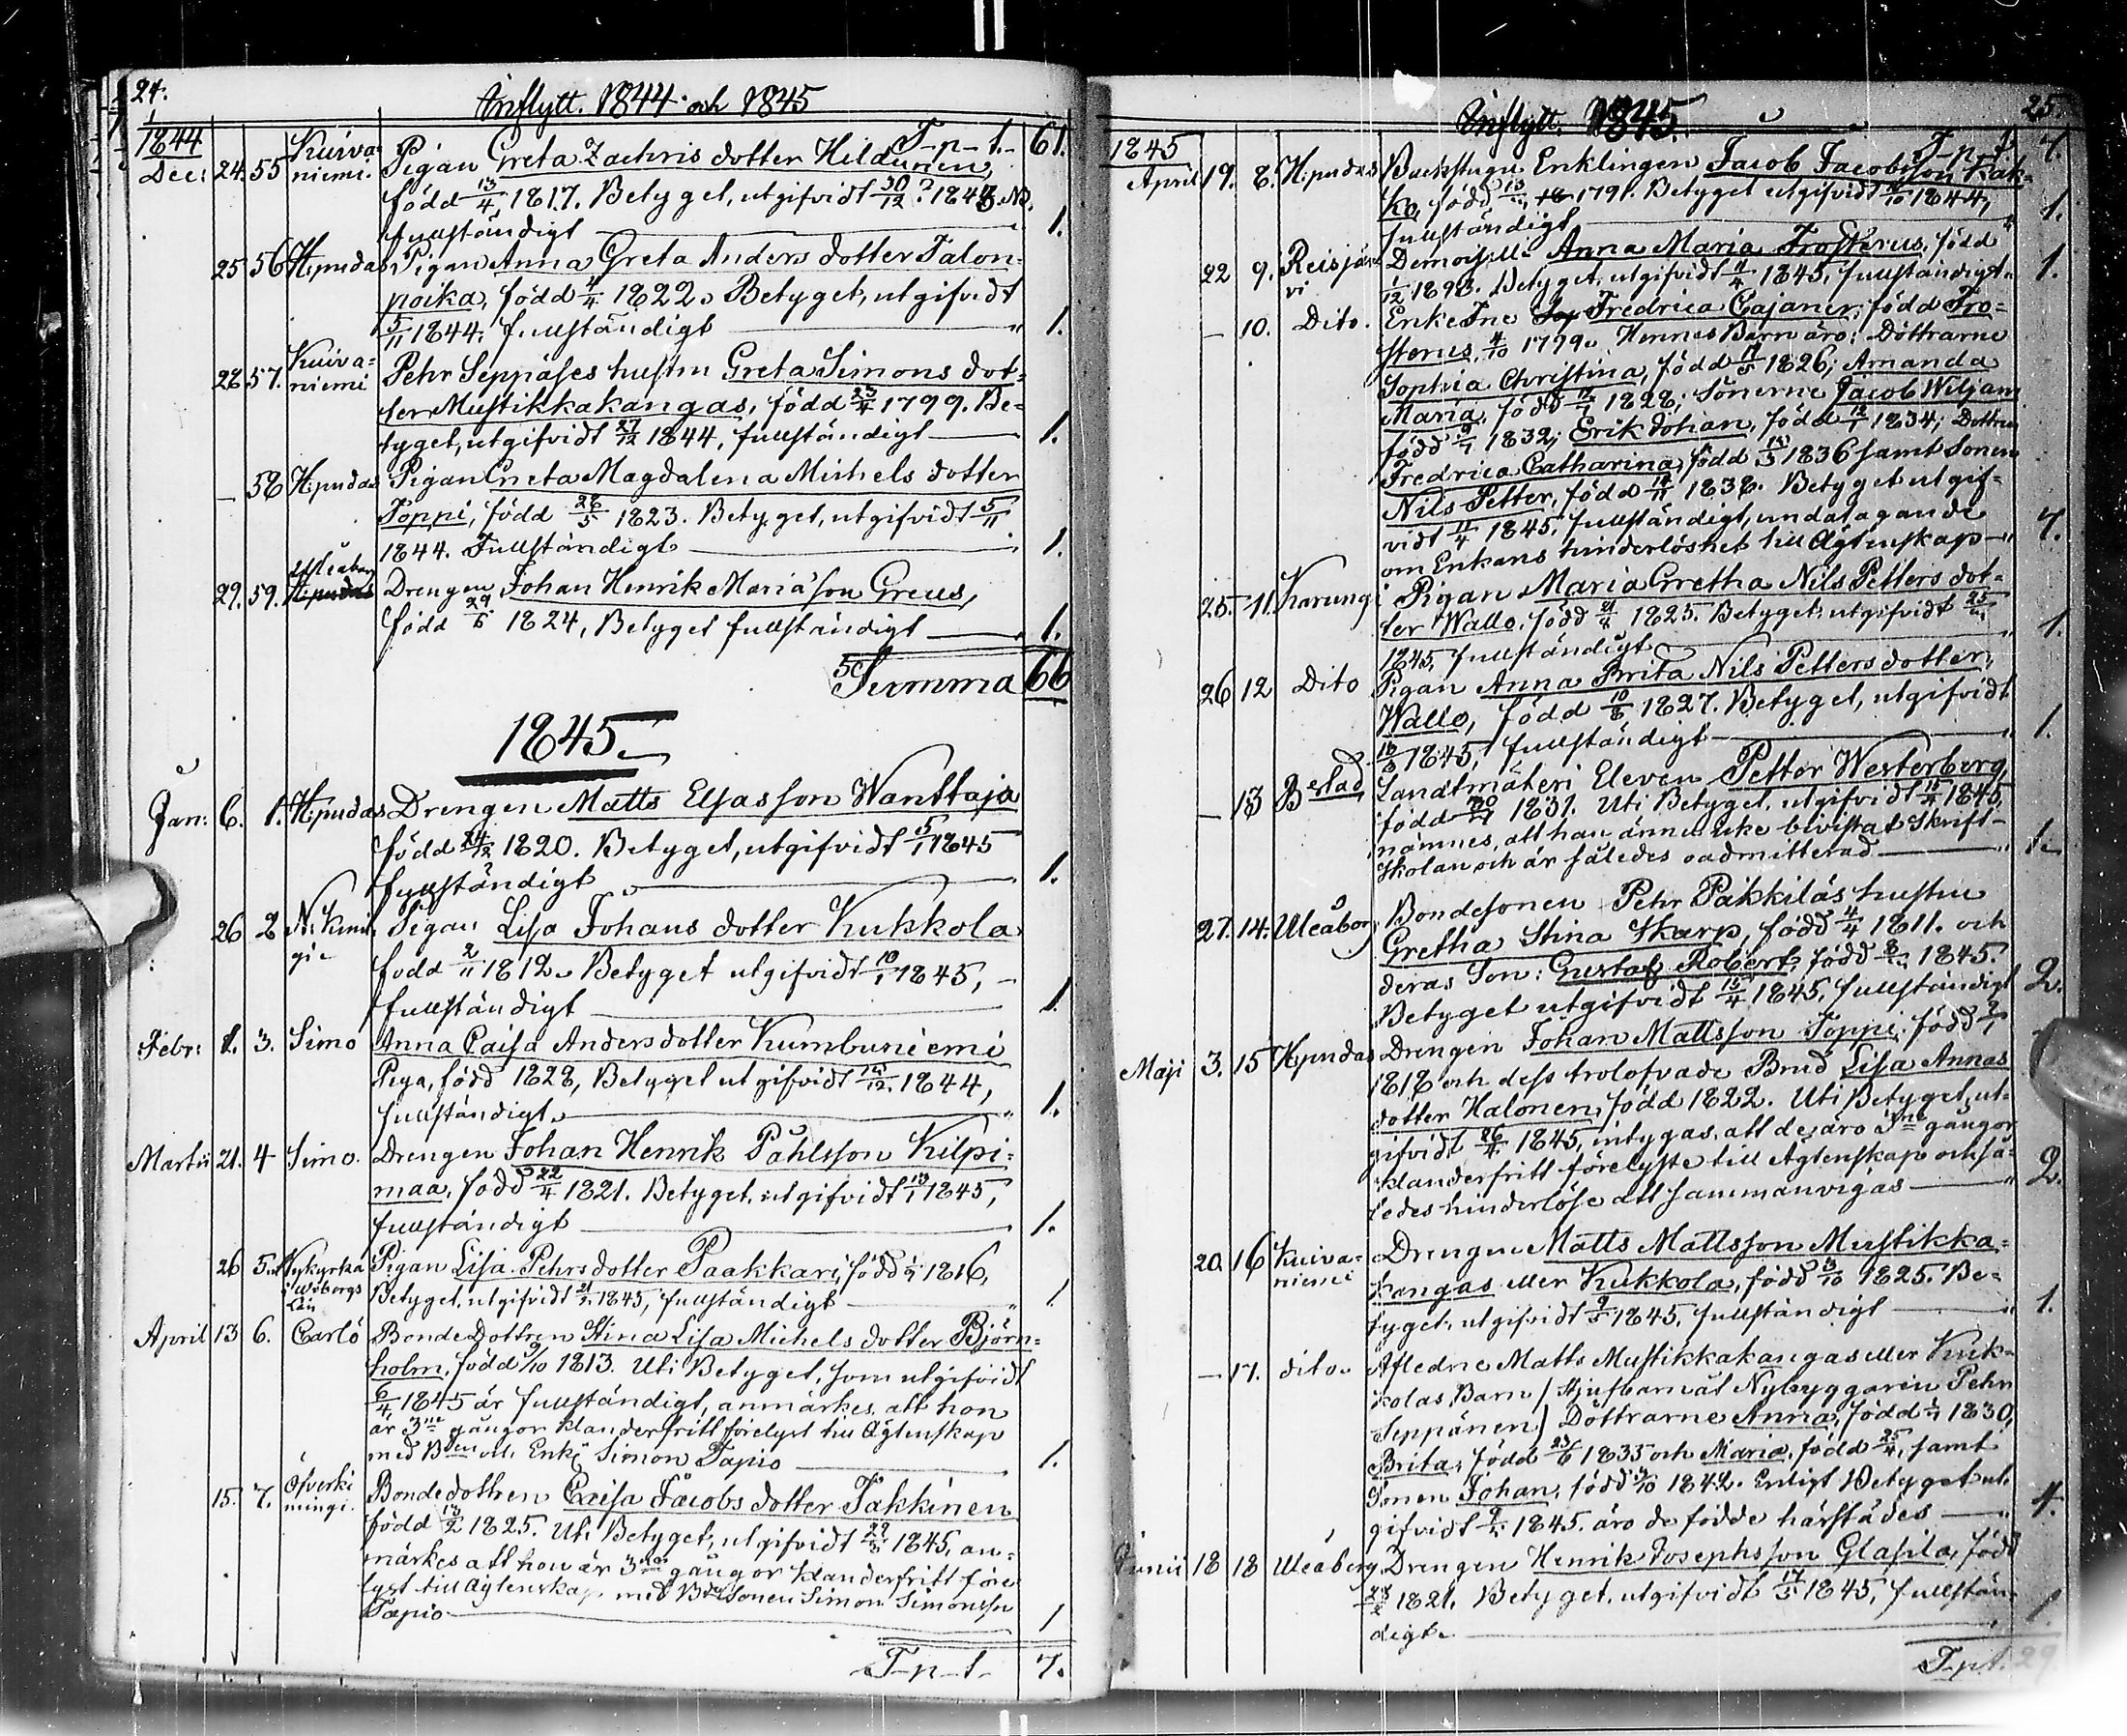 24.
Inflytt. 1844 och 1845
T-p-t- 61.
1844
Dec: 24. 55 Kuivaniemi. Pigan Greta Zachris dotter Hildunen,
född 13/4 1817. Betyget, utgifvidt 30/12 ? 1843. No.
fullständigt 1.
25 56 H:pudas Pigan Anna Greta Anders dotter Talon=
poika, född 4/4 1822. Betyget, utgifvidt
5/11 1844, fullständigt 1.
28 57. Kuiva=niemi Pehr Seppäses hustru Greta Simons dot=
ter Mustikkakangas, född 23/4 1799. Be=
tyget, utgifvidt 27/12 1844, fullständigt 1.
— 58 H:pudas Pigan Greta Magdalena Michels dotter
Toppi, född 28/5 1823. Betyget, utgifvidt 5/11
1844. Fullständigt 1.
Uleåborg
29. 59. H:pudas Drengen Johan Henrik Mariä son Greus,
född 29/6 1824, Betyget fullständigt 1.
Summa 66
1845.
Jan: 6. 1. H:pudas Drengen Matts Elsasson Wanttaja
född 24/12 1820. Betyget, utgifvidt 5/1 1845
fullständigt 1.
26 2 N. Kimingi Pigan Lisa Johans dotter Kukkola
född 2/11 1812. Betyget utgifvidt 10/1 1845,
fullständigt 1.
Febr: 1. 3. Simo Anna Caisa Andersdotter Kumbuniemi
Piga, född 1828, Betyget utgifvidt 12/12 1844,
fullständigt 1.
Martii 21. 4 Simo. Drengen Johan Henrik Påhlsson Kilpi=
maa, född 22/4 1821. Betyget, utgifvidt 13/1 1845,
fullständigt 1.
26 5. Nykyrka Wiborgs Län Pigan Lisa Pehrs dotter Paakkari, född 1816,
Betyget, utgifvidt 1845, fullständigt 1
April 13 6. Carlö Bonde Dottren Stina Lisa Michels dotter Björn=
holm, född 9/10 1813. Uti Betyget, som utgifvidt
6/4 1845 är fullständigt, anmärkes, att hon
är 3ne gångor klanderfritt förelyst till Ägtenskap
med Enkl: Simon Tapio 1.
15. 7. Öfverkimingi. Bondedottren Caisa Jacobs dotter Takkinen
född 13/2 1825. Uti Betyget, utgifvidt 29/3 1845, an=
märkes att hon är 3ne gångor klanderfritt före
lyst till Ägtenskap med Bdesonen Simon Simonsson
Tapio 1
T-p-t- 7.
25.
Inflytt. 1845.
T-p-t. 7.
1845
April 19. 8. H:pudas Backstugu Enklingen Jacob Jacobsson Kak=
ko, född 1791. Betyget utgifvidt 1844,
fullständigt 1.
22 9. Reisjärvi Demoiselle Anna Maria Frosterus, född
1/12 1893. Betyget, utgifvidt 11/4 1845, fullständigt 1.
— 10. Dito. Enke Fredrica Cajaner, född Fro=
sterus, 4/10 1799. Hennes Barn äro: Döttrarne
Sophia Christina, född 1826; Amanda
Maria, född 1828; Sönerne Jacob Wiljam
född 1832; Erik Johan, född 1834; Dottren
Fredrica Catharina, född 1836 samt Sonen
Nils Petter, född 14/11 1838. Betyget utgif=
vidt 11/4 1845, fullständigt, undatagande
om Enkans hinderlöshet till Ägtenskap 7.
25 11. Karungi Pigan Maria Gretha Nils Petters dot=
ter Wallo, född 21/4 1825. Betyget, utgifvidt
1845, fullständigt 1.
26 12 Dito Pigan Anna Brita Nils Petters dotter,
Wallo, född 10/8 1827. Betyget, utgifvidt
1845, fullständigt 1.
— 13 Bestad Landtmäteri Eleven Petter Westerberg,
född 1831. Uti Betyget, utgifvidt 15/4 1845,
nämnes, att han ännu icke bevistat Skrift-
skolan och är således oadmitterad 1.
27. 14. Uleåborg Bondesonen Pehr Pakkiläs hustru
Gretha Stina Skarp, född 4/4 1811. och
deras Son: Gustaf Robert, född 1845.
Betyget utgifvidt 15/4 1845, fullständigt 2.
Maji 3. 15 H:pudas Drengen Johan Mattsson Toppi, född
1818 och dess trolofvade Brud Lisa Annas
dotter Halonen, född 1822. Uti Betyget, ut=
gifvidt 26/4 1845, intygas, att de äro 3ne gångor
klanderfritt förelyste till Ägtenskap och så=
ledes hinderlöse att sammanvigas 2.
20. 16 Kuiva=niemi Drengen Matts Mattsson Mustikka=
kangas eller Kukkola, född 1825. Be=
tyget, utgifvidt 9/5 1845, fullständigt 1.
— 17. dito. Afledne Matts Mustikkakangas eller Kuk=
kolas, Barn / Stjufbarn åt Nybyggaren Pehr
Seppänen / Döttrarne Anna, född 1830,
Brita, född 23/6 1835 och Maria, född 25/4, samt
Sonen Johan, född 1842. Enligt Betyget ut=
gifvidt 1845. äro de födde härstädes 4.
Junii 18 18 Uleåborg Drengen Henrik Josephsson Glasila, född
1821. Betyget, utgifvidt 17/5 1845, fullstän=
digt. 1.
T-p-t. 29